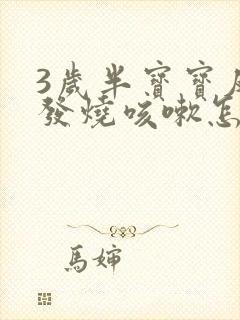 3歲半寶寶
發燒咳嗽怎
馬嬸